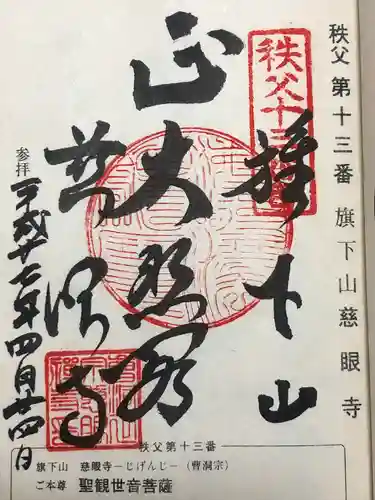 秩父 第十三番 旗下山慈眼寺
秩父十三
旗下山
正大悲殿
慈眼寺
参拝
平成廿七年四月廿四日
秩父第十三番
旗下山 慈眼寺ーじげんじー(曹洞宗)
ご本尊 聖観世音菩薩